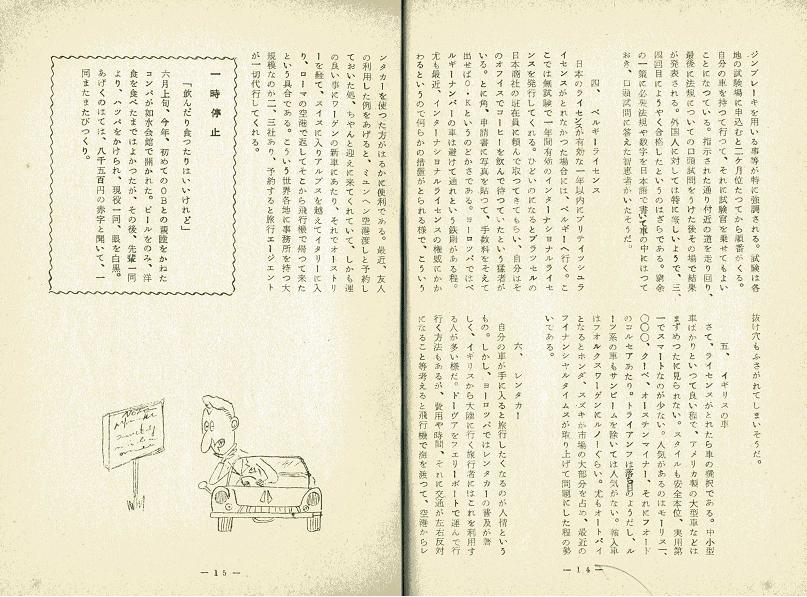 ジンブレーキを用いる事等が特に強調される。試験は各
地の試験場に申込むと二ケ月位たつてから順番がくる。
自分の車を持つて行つて、それに試験官を乗せてもよい
ことになつている。指示された通り付近の道を走り回り、
最後に法規についての口頭試問をうけた後その場で結果
が発表される。外国人に対しては特に厳しいようで、三、
四回目にようやく合格したというのはざらである。窮余
の一策に必要法規や数字を日本語で書いて車の中にはつて
おき、口頭試問に答えた智恵者がいたそうだ。
四、ベルギーライセンス
日本のライセンスが有効な一年以内にブリテイッシユラ
イセンスがとれなかつた場合には、ベルギーへ行く。こ
こでは無試験で一年間有効のインターナショナルライセ
ンスを発行してくれる。ひどいのになるとブラツセルの
日本商社の駐在員に頼んで取つてきてもらい、自分はそ
のオフイスでコーヒーを飲んで待つていたという猛者が
いる。とに角、申請書に写真を貼つて、手数料をそえて
出せばO・Kというのどかさである。ヨーロツパではベ
ルギーナンバーの車は避けて通れという鉄則がある程。
尤も最近、インターナショナルライセンスの権威にかか
わるというので何らかの措置がとられる様で、こういう
抜け穴もふさがれてしまいそうだ。
五、イギリスの車
さて、ライセンスがとれたら車の選択である。中小型
車ばかりといつて良い程で、アメリカ製の大型車などは
まずめつたに見られない。スタイルも安全本位、実用第
一でスマートなのが少ない。人気があるのはモーリス一、
〇〇〇、クーペ、オースチンマイナー、それにフオード
のコルセアあたり。トライアンフは落目のようだし、ル
ーツ系の車もサンビームを除いては人気がない。輸入車
はフオルクスワーゲンにルノーぐらい。尤もオートバイ
となるとホンダ、スズキが市場の大部分を占め、最近の
フイナンシヤルタイムスが取り上げて問題にした程の勢
いである。
六、レンタカー
自分の車が手に入ると旅行したくなるのが人情という
もの。しかし、ヨーロツパではレンタカーの普及が著
しく、イギリスから大陸に行く旅行者にはこれを利用す
る人が多い様だ。ドーヴアをフエリーボートで運んで行
行く方法もあるが、費用や時間、それに交通が左右反対
になること等考えると飛行機で海を渡つて、空港からレ
—14—
ンタカーを使つた方がはるかに便利である。最近、友人
の利用した例をあげると、ミュンヘン空港渡しと予約し
ておいた処、ちやんと迎えに来てくれていて、しかも運
の良い事にワーゲンの新車にあたり、それでオーストリ
ーを経て、スイスに入りアルプスを越えてイタリーに入
り、ローマの空港で返してそこから飛行機で帰つて来た
という具合である。こういう世界各地に事務所を持つ大
規模なのが二、三社あり、予約すると旅行エージエント
が一切代行してくれる。
一時停止
「飲んだり食つたりはいいけれど」
六月上旬、今年、初めてのOBとの親睦をかねた
コンパが如水会館で開かれた。ビールをのみ、洋
食を食べたまではよかつたが、その後、先輩一同
より、ハツパをかけられ、現役一同、眼を白黒。
あげくのはては、八千五百円の赤字と聞いて、一
同またまたびつくり。
—15—